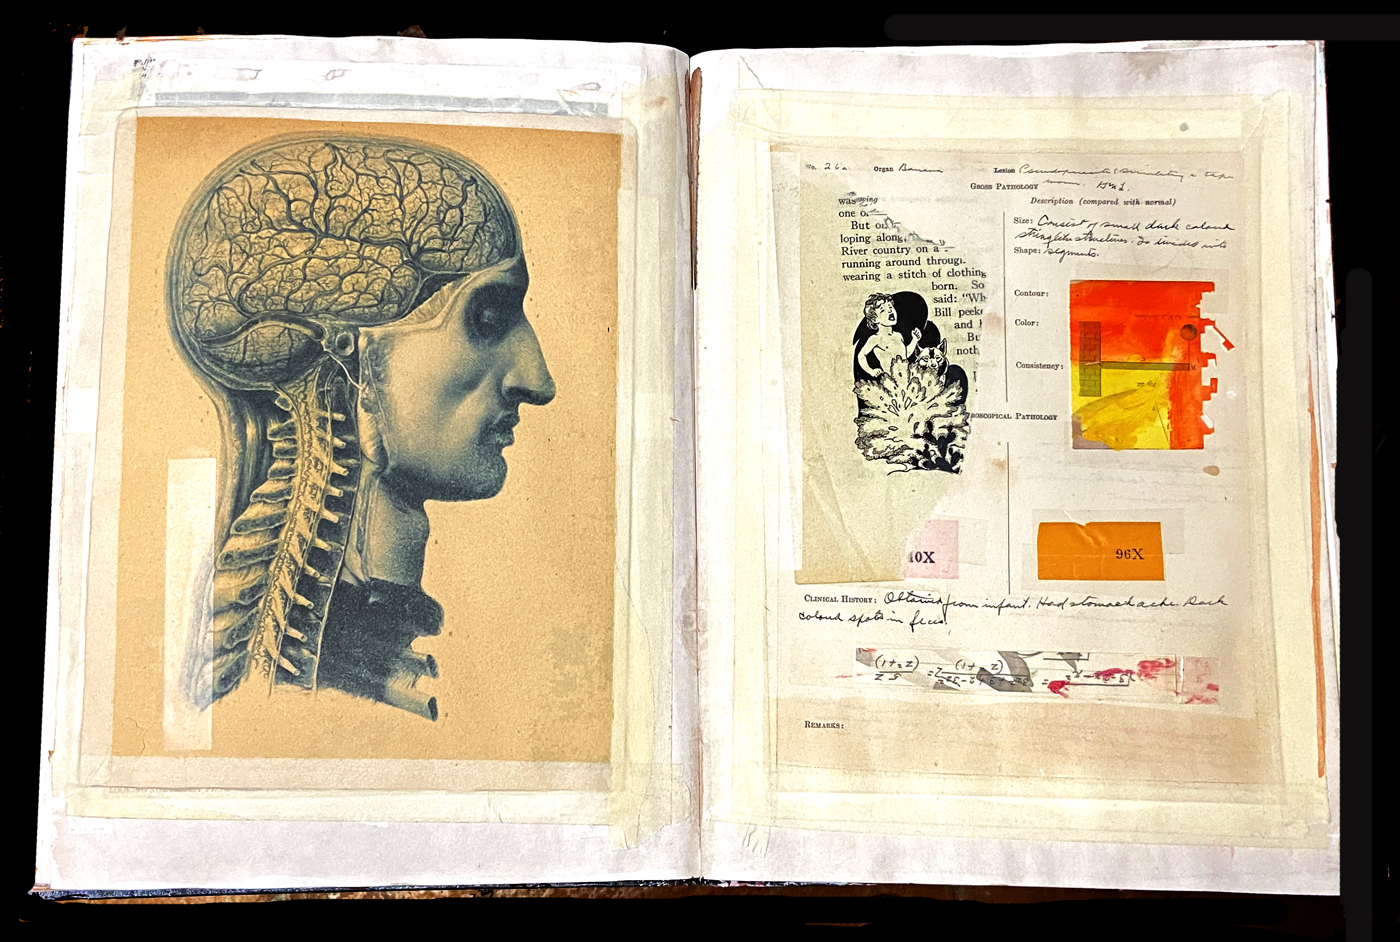 No. 26a Organ Banana Lesion Pseudoparasite (simulating a tape
worm.
GROSS PATHOLOGY
Description (compared with normal)
was
one o
But
loping along,
River country on a
running around throug
wearing a stitch of clothing
born. So
said: "Wh
Bill peek
and
Bu
noth
Size: Consist of small dark coloured
stringlike structures. Is divided into
Shape: segments.
Contour:
Color:
Consistency:
ROSCOPICAL PATHOLOGY
10X
96X
CLINICAL HISTORY: Obtained from infant. Had stomach ache. Dark
coloured spots in feces.
REMARKS: